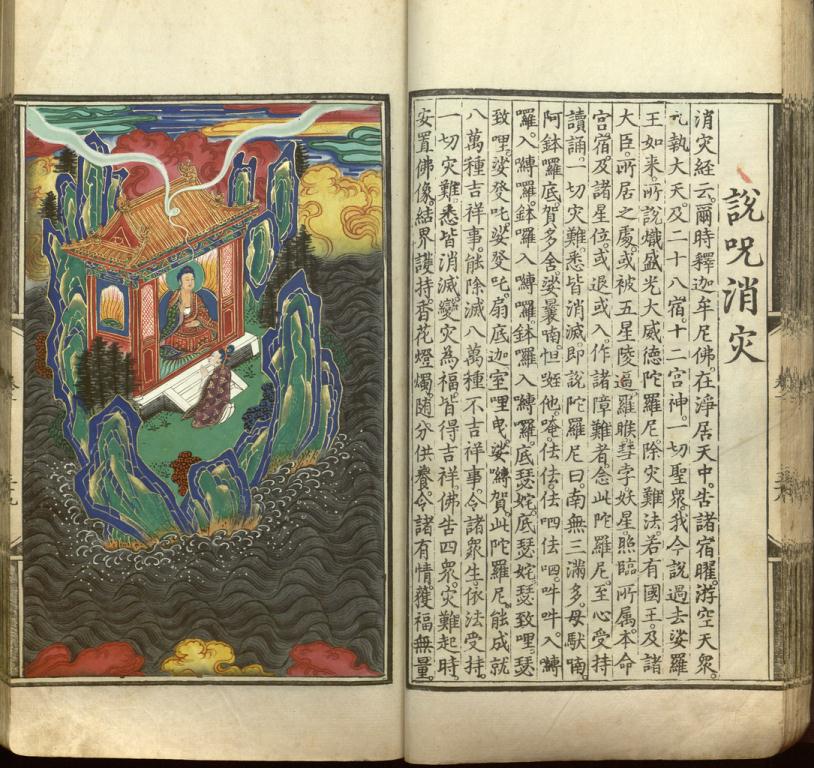 説呪消灾
消灾経云。爾時釋迦牟尼佛。在淨居天中。告諸宿曜。游空天衆。
九執大天。及二十八宿十二宮神。一切聖衆。我今說過去娑羅
王如来。所說熾盛光大威德陀羅尼。除灾難法。若有國王。及諸
大臣。所居之處。或被五星陵逼。羅睺彗孛妖星。照臨所属。本命
宮宿及諸星位。或退或入。作諸障難者。念此陀羅尼。至心受持
讀誦。一切灾難。悉皆消滅。即說陀羅尼曰。南無三滿多。母馱喃。
阿鉢囉底。賀多舍娑曩喃。怛姪他。唵。佉佉。佉呬佉呬。吽吽。入嚩
囉。入嚩囉。鉢囉入嚩囉。鉢囉入嚩囉。底瑟姹。底瑟姹。瑟致哩。瑟
致哩。娑癹吒。娑癹吒。扇底迦。室哩曳。娑嚩賀。此陀羅尼。能成就
八萬種吉祥事。能除滅八萬種不吉祥事。令諸衆生。依法受持。
一切灾難。悉皆消滅。變灾為福。皆得吉祥。佛告四衆。灾難起時。
安置佛像。結界護持。香花燈燭。随分供養。令諸有情。獲福無量。